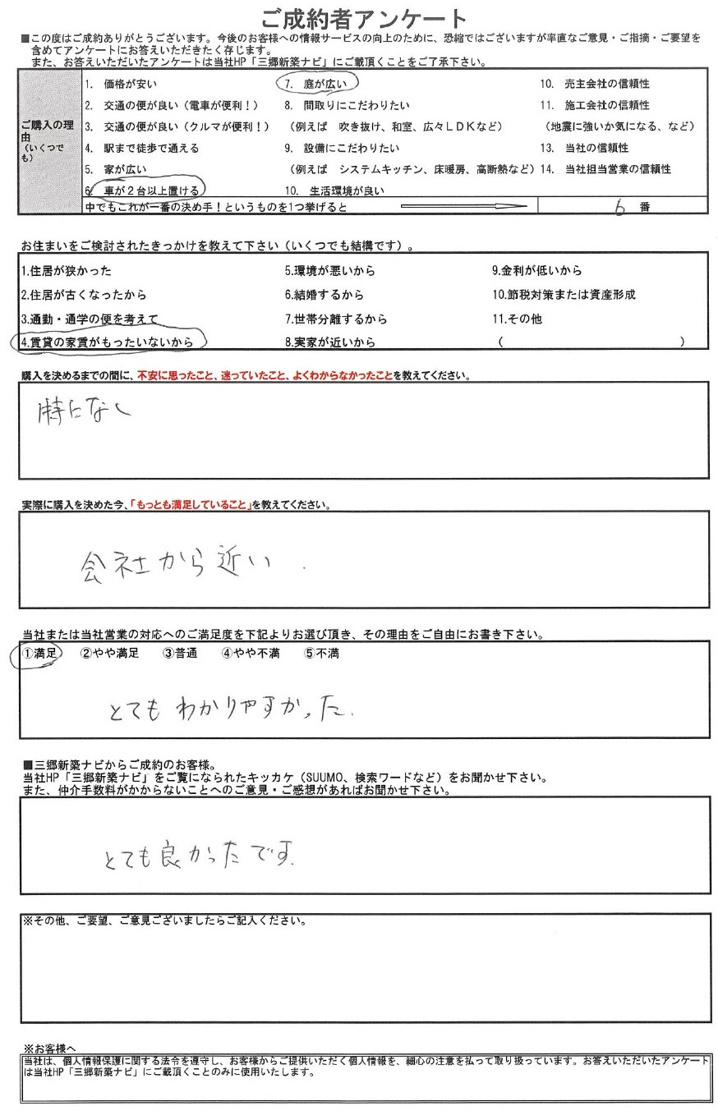 ご成約者アンケート
■この度はご成約ありがとうございます。今後のお客様への情報サービスの向上のために、恐縮ではございますが率直なご意見・ご指摘・ご要望を
含めてアンケートにお答えいただきたく存じます。
また、お答えいただいたアンケートは当社HP「三郷新築ナビ」にご載頂くことをご了承下さい。
ご購入の理由
（いくつでも）
1. 価格が安い
2. 交通の便が良い（電車が便利！）
3. 交通の便が良い（クルマが便利！）
4. 駅まで徒歩で通える
5. 家が広い
6. 車が２台以上置ける
7. 庭が広い
8. 間取りにこだわりたい
（例えば 吹き抜け、和室、広々ＬＤＫなど）
9. 設備にこだわりたい
（例えば システムキッチン、床暖房、高断熱など）
10. 生活環境が良い
10. 売主会社の信頼性
11. 施工会社の信頼性
（地震に強いか気になる、など）
13. 当社の信頼性
14. 当社担当営業の信頼性
中でもこれが一番の決め手！というものを1つ挙げると
6 番
お住まいをご検討されたきっかけを教えて下さい（いくつでも結構です）。
1.住居が狭かった
2.住居が古くなったから
3.通勤・通学の便を考えて
4.賃貸の家賃がもったいないから
5.環境が悪いから
6.結婚するから
7.世帯分離するから
8.実家が近いから
9.金利が低いから
10.節税対策または資産形成
11.その他
（ ）
購入を決めるまでの間に、不安に思ったこと、迷っていたこと、よくわからなかったことを教えてください。
特になし
実際に購入を決めた今、「もっとも満足していること」を教えてください。
会社から近い．
当社または当社営業の対応へのご満足度を下記よりお選び頂き、その理由をご自由にお書き下さい。
①満足 ②やや満足 ③普通 ④やや不満 ⑤不満
とてもわかりやすかった.
■三郷新築ナビからご成約のお客様。
当社HP「三郷新築ナビ」をご覧になられたキッカケ（SUUMO、検索ワードなど）をお聞かせ下さい。
また、仲介手数料がかからないことへのご意見・ご感想があればお聞かせ下さい。
とても良かったです.
※その他、ご要望、ご意見ございましたらご記入ください。
※お客様へ
当社は、個人情報保護に関する法令を遵守し、お客様からご提供いただく個人情報を、細心の注意を払って取り扱っています。お答えいただいたアンケート
は当社HP「三郷新築ナビ」にご載頂くことのみに使用いたします。